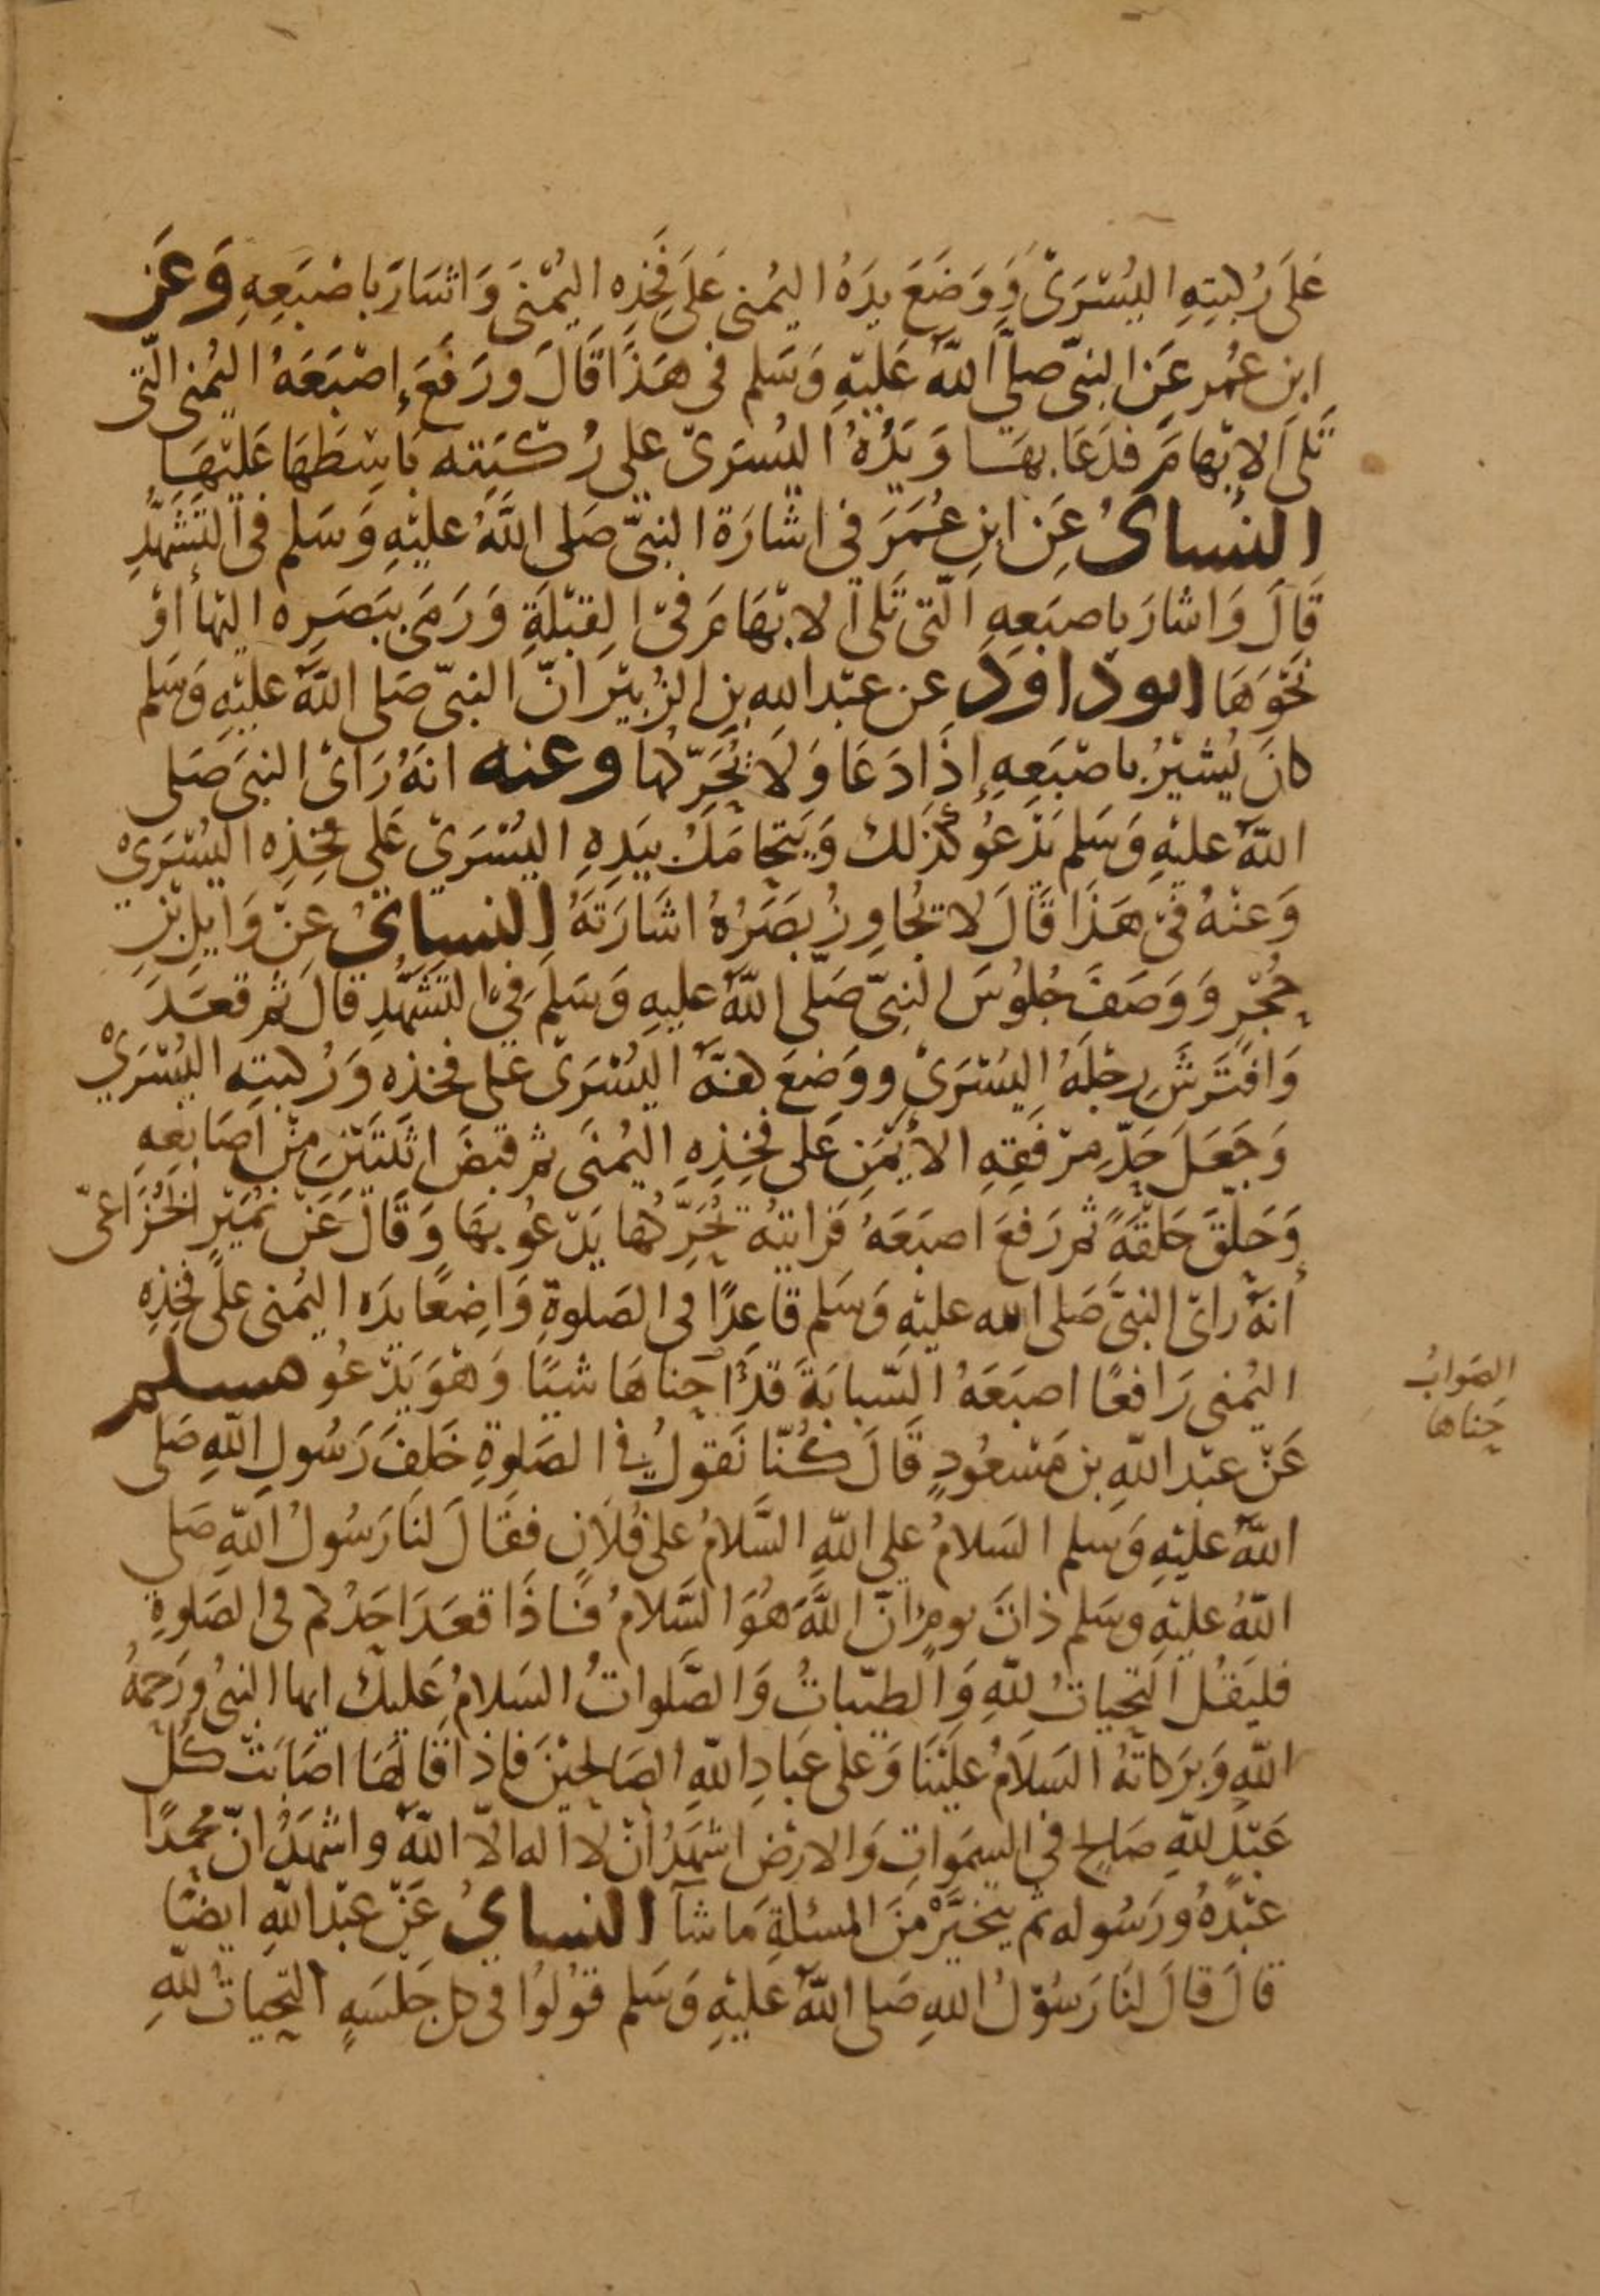 عَلَى رُكبتِهِ اليُسْرَىْ وَوَضَعَ يدَهُ اليمُنى عَلَى فَخِذِه اليُمْنىَ وَاشَارَ باصْبَعِهِ وَعَن
ابن عُمر عَن النبىّ صلىَّ اللهُ عَليْهِ وَسَلم فى هَذَا قَالَ ورَفَعَ إصْبَعَهُ اليُمنى الّتى
تَلى الإبْهامَ فدَعَا بهَا وَيَدُهُ اليُسرَىْ على رُكبَتِه بَاسِطهَا عَليْهَا
النسائُ عَن ابنِ عُمَرَ فى اشارَة النبىّ صَلى اللَّهُ عليْهِ وَسَلم فى التَشَهُّدِ
قَالَ وَاشارَ باصبَعِهِ الّتى تَلى الابْهَامَ فىْ القِبْلَةِ وَرَمَى ببَصَرِه اليْها أوْ
نَحْوَهَا ابو داوَدَ عن عبْد الله بن الزُبيْرَ انّ النبىّ صَلى اللهُ عليْهِ وَسَلم
كانَ يُشيْرُ باصْبَعِهِ إذَا دَعَا وَلَا يُحَرِّكها وعنه انهُ رَاىْ النبىَ صَلى
اللهُ عليْهِ وَسَلم يَدْعُو كَذَلك وَيَتَحامَلُ بيَدِهِ اليُسْرَىْ عَلى فخِذِه اليُسْرَىْ
وَعنْهُ فىْ هَذَا قَالَ لا تجُاوِزُ بصَرُهُ اشَارَتَهُ النسائىُ عنْ وَايلِ بْنِ
حُجْرٍ وَوَصَفَ جُلوُسَ النبِىّ صَلَّى اللهُ عليهِ وَسَلمَ فىْ التَشَهُّدِ قالَ ثم قعَدَ
وَافتَرشَ رِجْلَهُ اليُسْرَىْ ووَضعَ كفّهُ اليُسْرَىْ على فخذه وَرُكبتِه اليُسْرَىْ
وَجَعَلَ حَدّ مرْفَقِهِ الأيْمَنِ عَلى فخِذِهِ اليُمْنَى ثم قبَضَ اثنَتَيْنِ منْ اَصَابعِهِ
وَحَلّقَ حَلقَةً ثم رَفعَ اصبَعَهُ فَرَايتهُ يُحَرِّكُها يَدْعُو بهَا وَقَالَ عَنْ نُمَيْرٍ الخُزَاعىّ
أنهُ رَاىْ النبىَّ صَلى الله عليْهِ وَسَلم قاعِدًا فى الصَلوةِ وَاضِعًا يدَه اليُمنى علَى فخِذِهِ
اليُمنى رَافعًا اصبَعَهُ السّبابَةَ قَدْ احناهَا شيئًا وَهوَ يَدْعُو مسلم
عَنْ عبْد اللهِ بن مَسْعُودٍ قَالَ كُنّا نَقولُ فى الصَلوةِ خَلفَ رَسُولِ اللهِ صَلى
اللهُ عليْهِ وَسلم السَلامُ على اللهِ السَّلامُ على فُلَانٍ فقَالَ لنَا رَسُولُ اللهِ صَلى
اللهُ عليْهِ وسَلم ذاتَ يومٍ انّ اللهَ هُوَ السَّلامُ فاذَا قعَدَ احَدُكم فى الصَلوةِ
فليَقُل التحياتُ للهِ وَالطيّباتُ وَالصَّلواتُ السَلامُ عَليكَ ايها النبىُ ورَحمةُ
اللهِ وَبرَكاتهُ السَلَامُ عليْنَا وَعلى عبَادِ اللهِ الصَالحيْنَ فاذا قالهَا اصَابَتْ كُل
عَبْدٍ للهِ صَالحٍ فى السمَواتِ وَالارْضِ اشهَدُ انْ لا اله الّا اللهُ واشهَدُ انّ محمدًا
عبْدهُ ورَسُوله ثم يتخَيَّرْ منَ المسئلةِ مَا شآ النسائىُ عَنْ عبْد اللهِ ايضًا
قالَ قالَ لنَا رَسُوْلُ اللهِ صَلى اللهُ عَليْهِ وَسَلم قوْلوُا فى كل جَلسَهٍ التحياتُ للهِ
الصَوابُ
حَناها